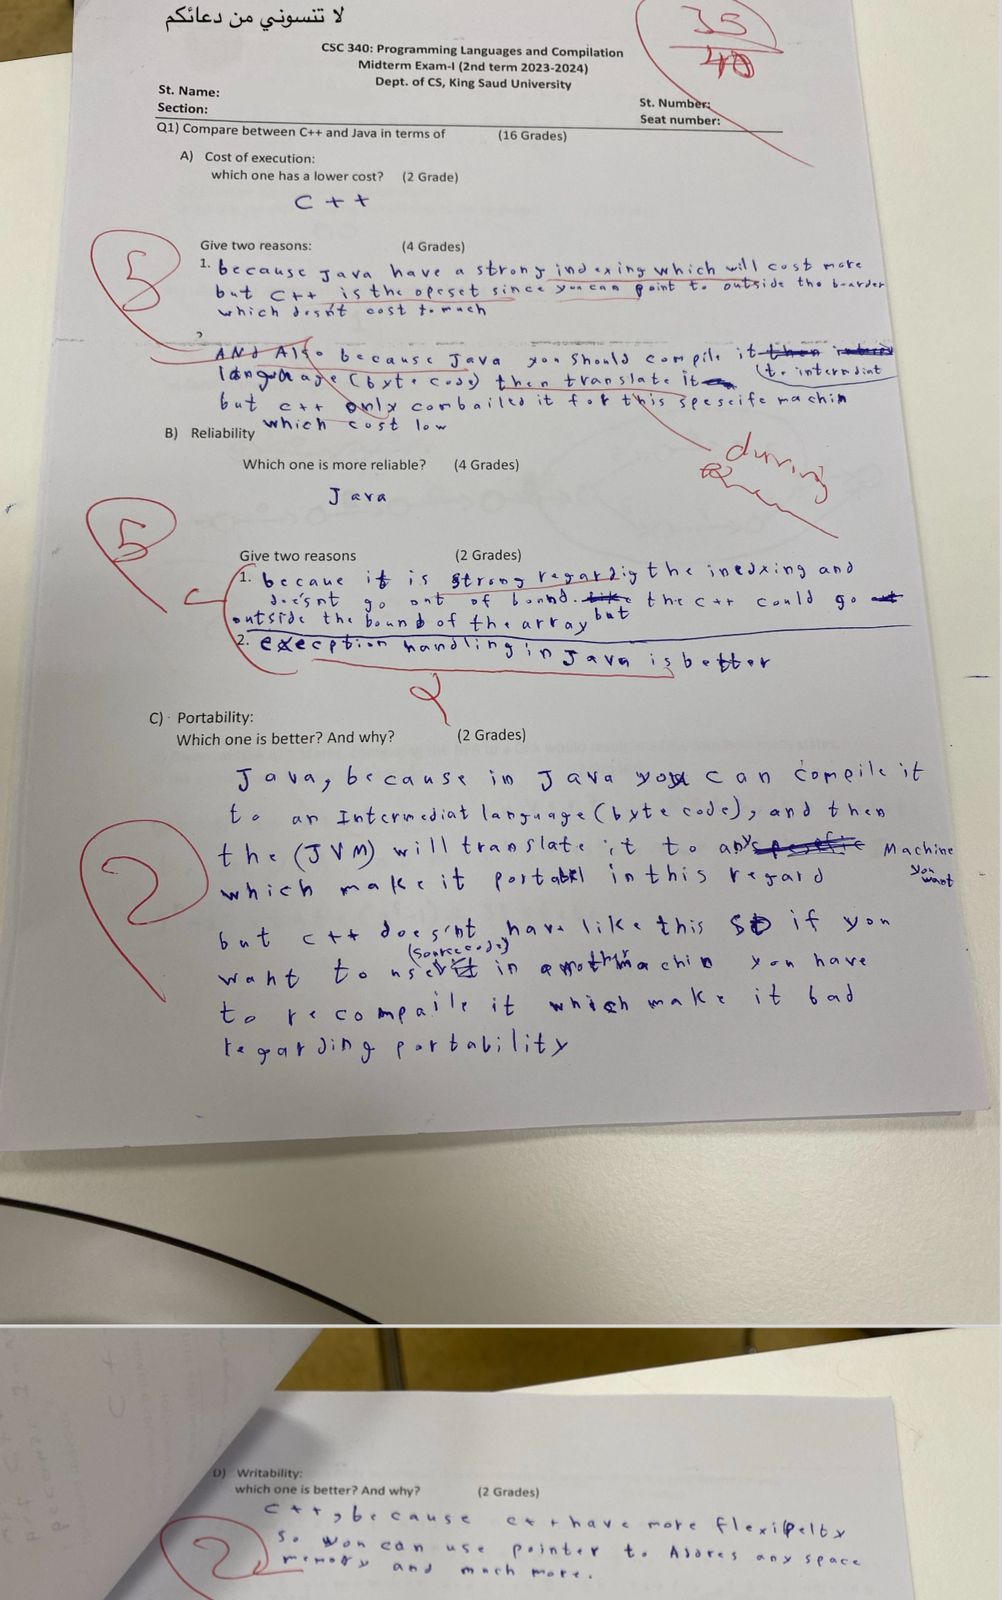 لا تنسوني من دعائكم
35
40
CSC 340: Programming Languages and Compilation
Midterm Exam-I (2nd term 2023-2024)
Dept. of CS, King Saud University
St. Name:
St. Number:
Section:
Seat number:
Q1) Compare between C++ and Java in terms of (16 Grades)
A) Cost of execution:
which one has a lower cost? (2 Grade)
C++
Give two reasons: (4 Grades)
5
1. because Java have a strong indexing which will cost more
but C++ is the opeset since you can point to outside the boarder
which dosn't cost to much
2
AND Also because Java you should compile it
(to intermdiat
language (byte code) then translate it
but C++ only combailed it for this spescife machin
which cost low
during
B) Reliability
Which one is more reliable? (4 Grades)
Java
5
Give two reasons (2 Grades)
1. becaue it is strong regardig the inedxing and
does'nt go out of bound. the C++ could go
outside the bound of the array but
2. exeception handling in Java is better
C) Portability:
Which one is better? And why? (2 Grades)
Java, because in Java you can compile it
to an Intermediat language (byte code), and then
the (JVM) will translate it to any Machine
you want
which make it portabel in this regard
2
but C++ does'nt have like this so if you
(source code)
want to use in another machin you have
to recompaile it which make it bad
regarding portability
D) Writability:
which one is better? And why? (2 Grades)
C++, because C++ have more flexipelty
so you can use pointer to Adores any space
memory and much more.
2